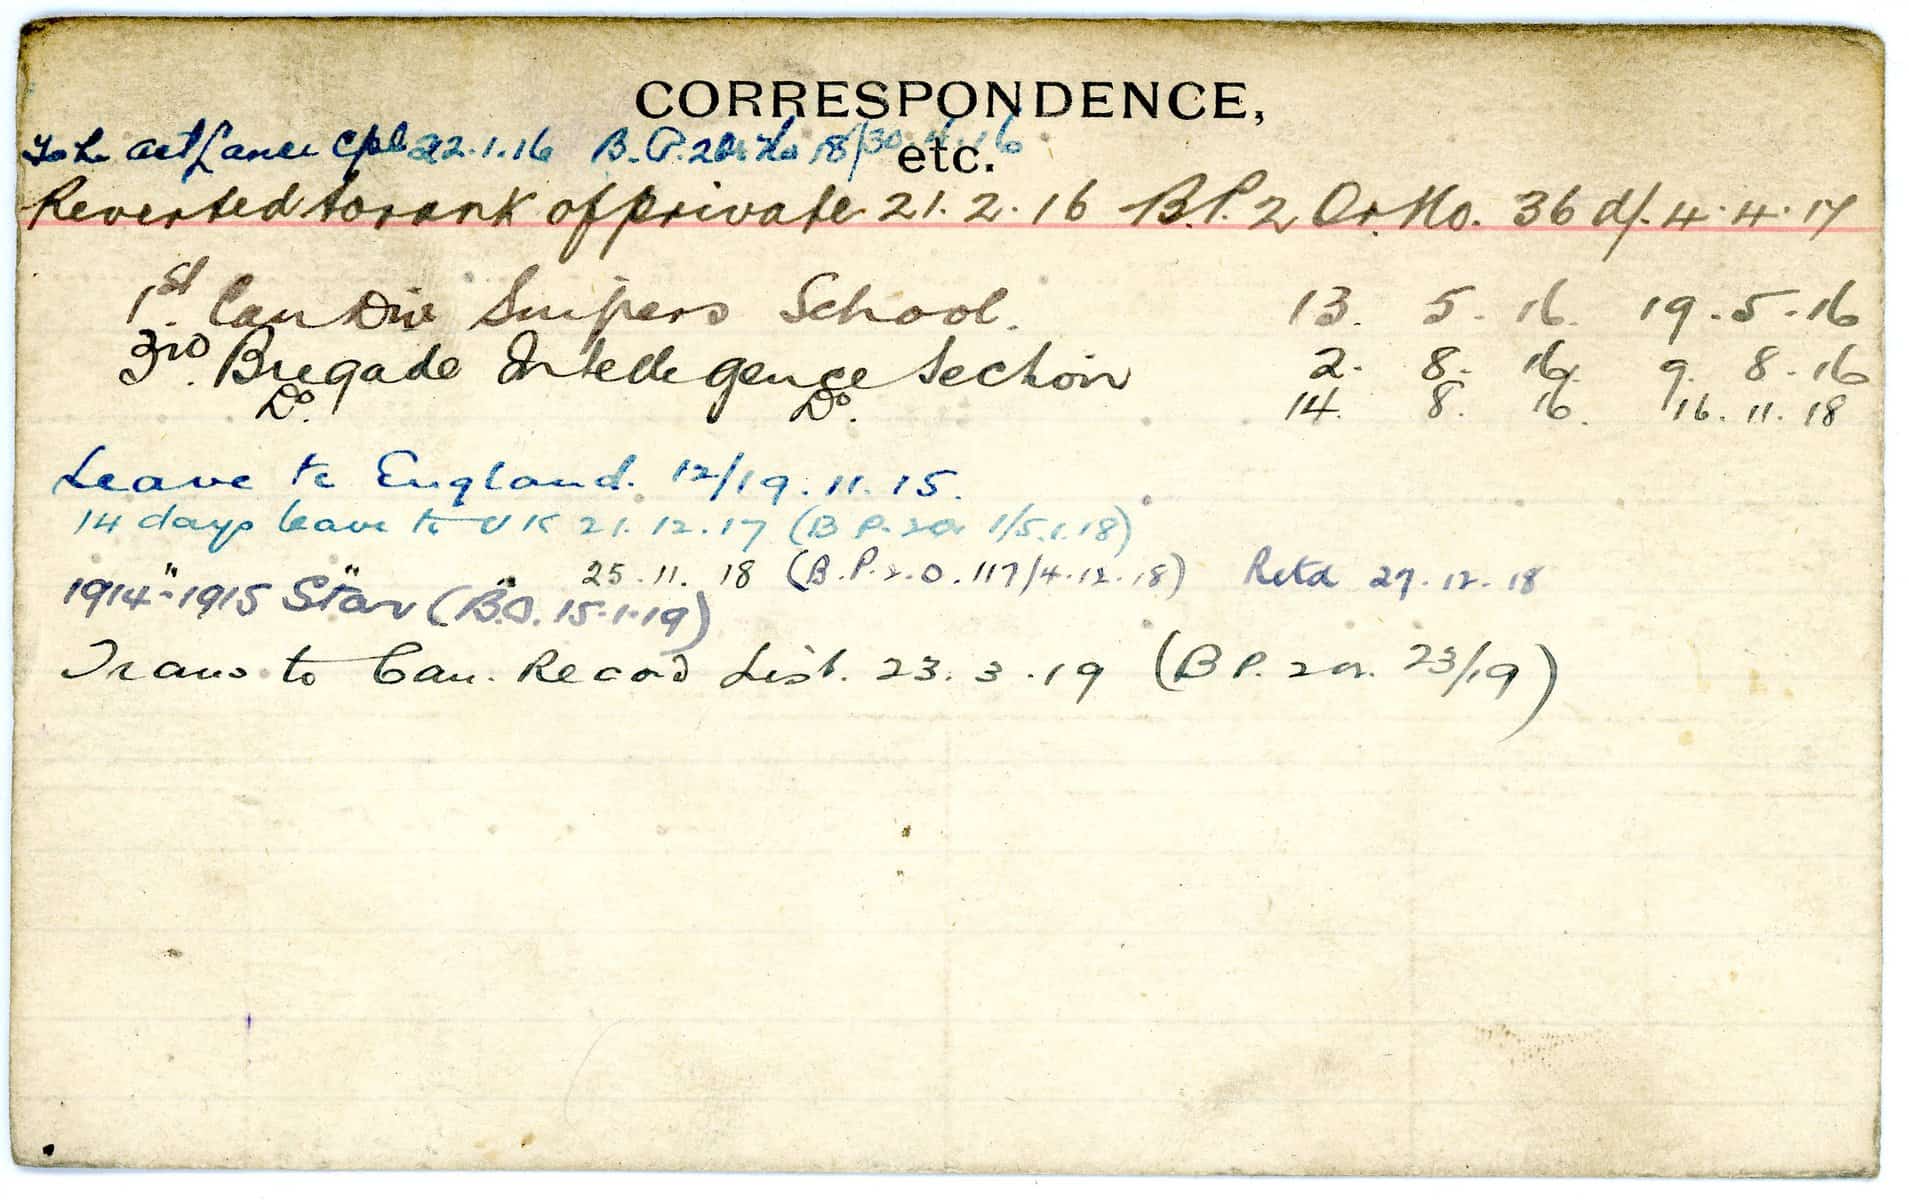 CORRESPONDENCE,
etc.
To be act Lance Cpl 22.1.16 B.P.2 Or No 18/30.4.16
Reverted to rank of private 21.2.16 B.P.2 Or. No. 36 d/. 4.4.17
1st. Can Div Snipers School. 13. 5. 16. 19.5.16
3rd. Brigade Intelligence Section 2. 8. 16. 9. 8. 16
Do. Do. 14. 8. 16. 16.11.18
Leave to England. 12/19.11.15.
14 days leave to UK 21.12.17 (B P. 2 Or 1/5.1.18)
" " " 25.11.18 (B.P.2.O.117/4.12.18) Retd 27.12.18
1914-1915 Star (B.O. 15.1.19)
Trans to Can. Record List. 23.3.19 (B P. 2 Or. 23/19)